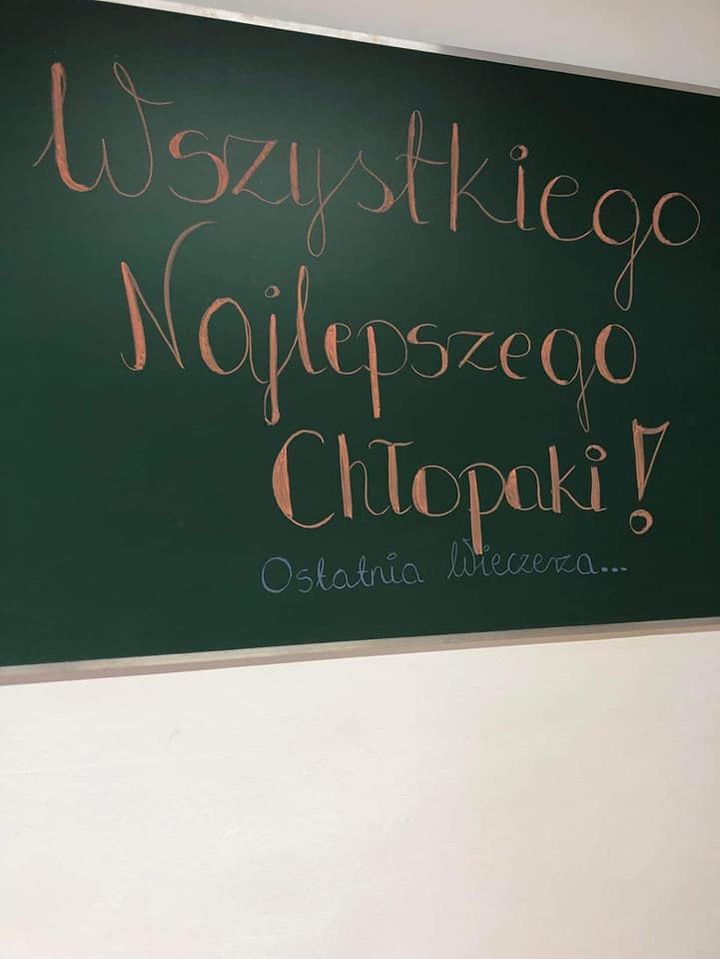 Wszystkiego
Najlepszego
Chłopaki!
Ostatnia Wieczerza...